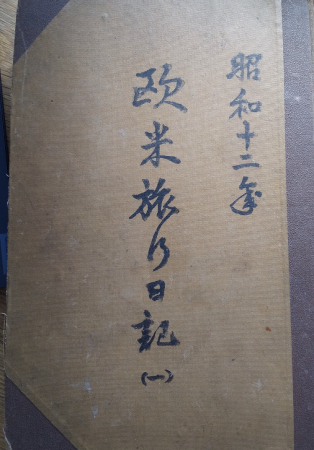 昭和十二年
欧米旅行日記
(一)